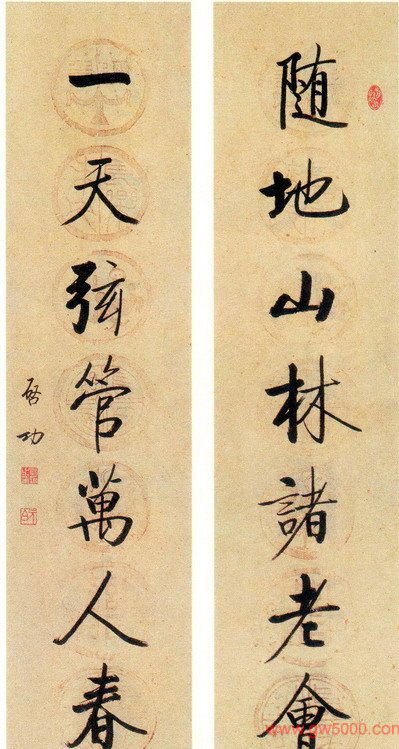 随地山林諸老會
一天弦管萬人春
啓功
www.gw5000.com